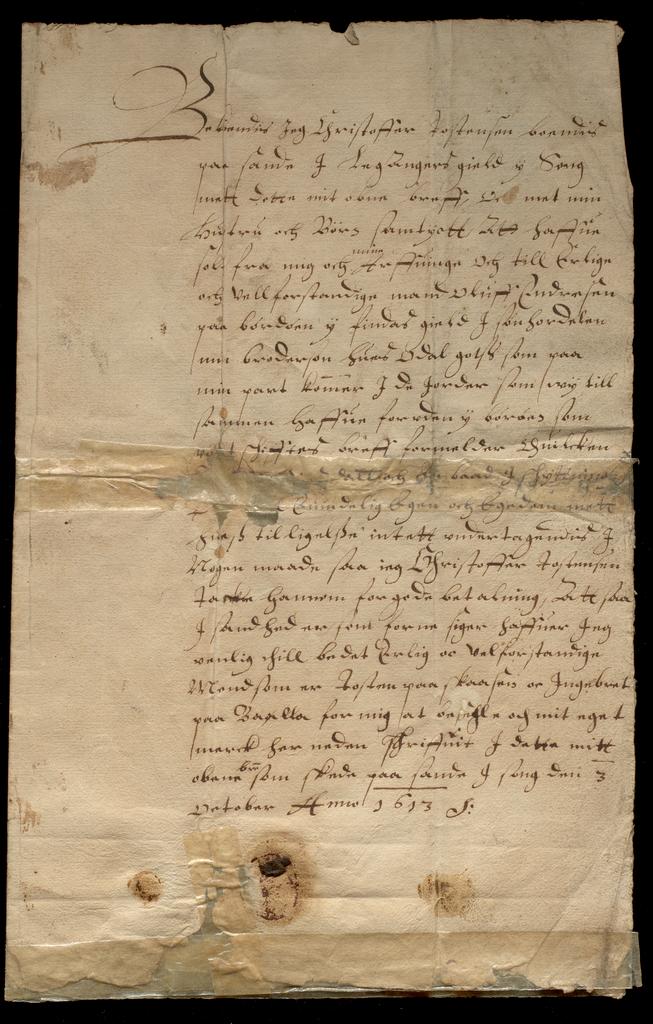 Bekiendis Jeg Christoffer Tostensen boendis
paa sande J Leganger gield y Song
mett dette mit obne breff, Och met min
Hustru och Børns samtyctt Att haffue
solt fra mig och mine Arffuinge Och till Erlige
och Vellforstandige mand Oluff Endresen
paa bordøen y findas gield J sønhordelen
min brodersøn hues Odal gotz som paa
min part kommer J de Jorder som wy till
sammen haffue forrden y som
skifftes breff formelder Huilcken
baad J
bygen och met
tilligelse intett undertagendis J
Nogen maade saa ieg Christoffer Tostensen
Tacker hannom for gode betalning, Att saa
J sandhed er som forne siger haffuer Jeg
venlig till bedet Erlig oc velforstandige
Mend som er Tosten paa skaasen oc Ingebret
paa Baalta for mig at beseglle och mit eget
merck her neden Schriffuit J dette mitt
obene breff som skede paa sande J song den 3
October Anno 1613